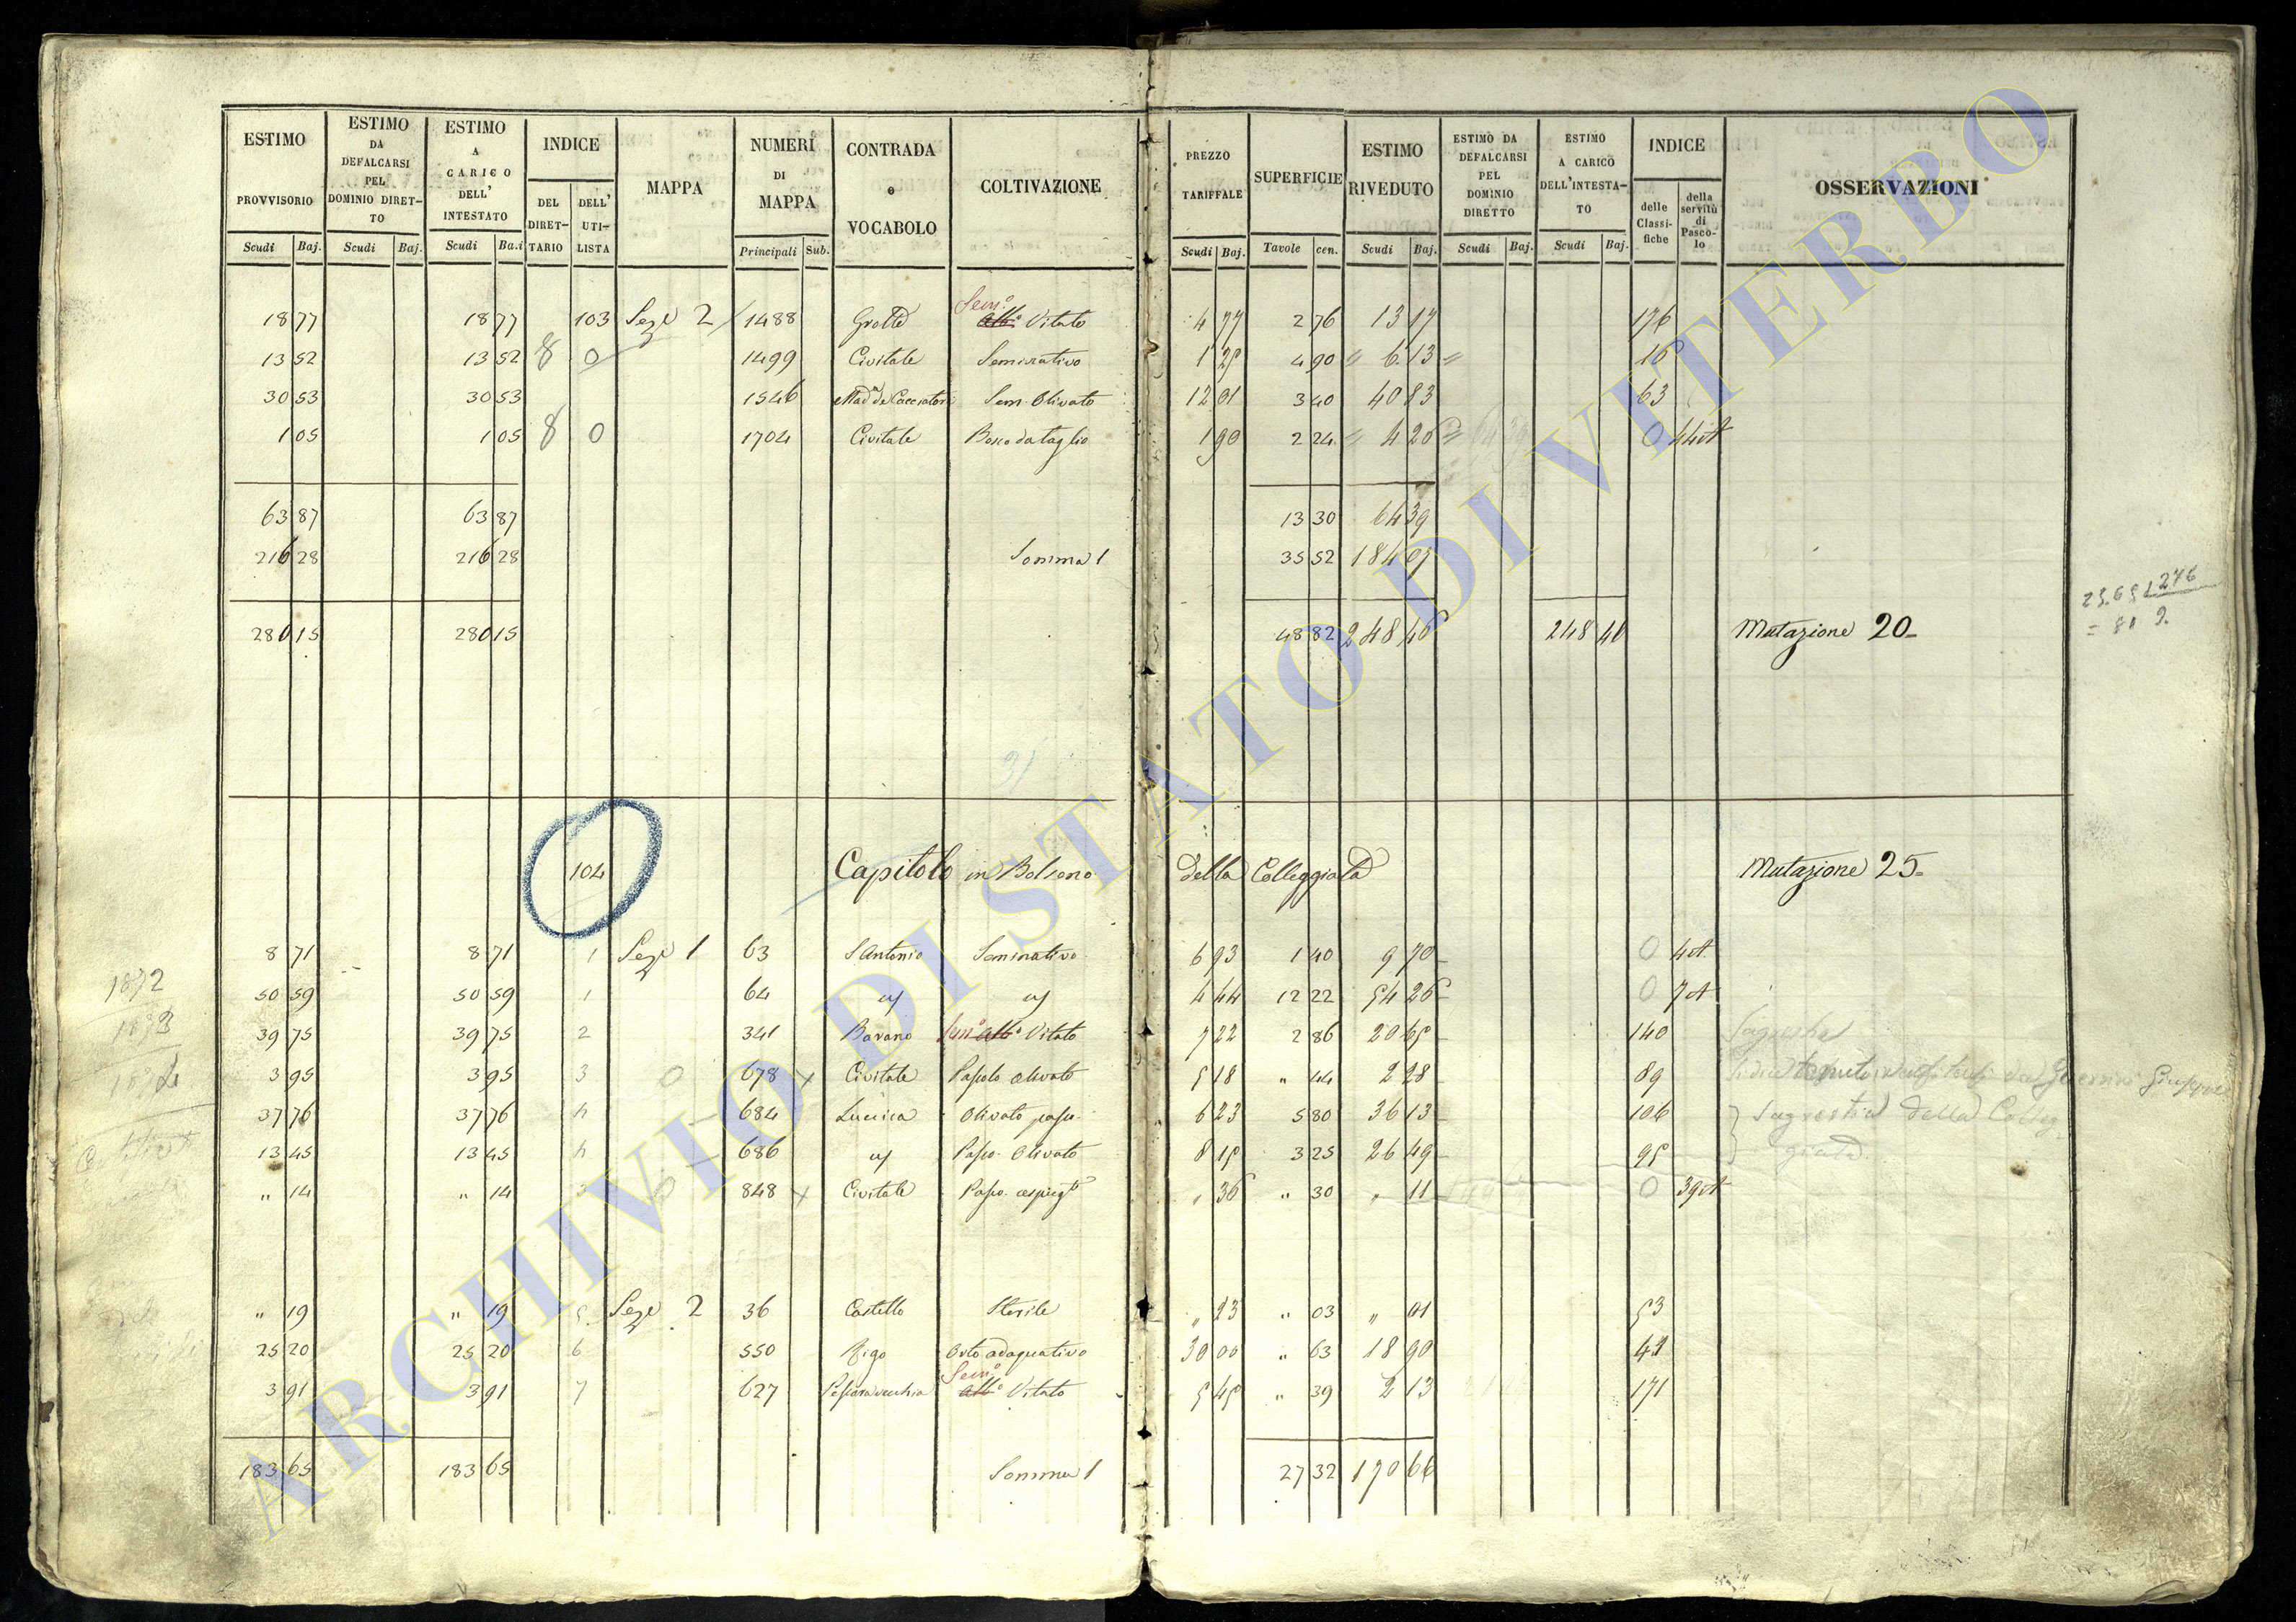 ESTIMO PROVVISORIO Scudi Baj. ESTIMO DA DEFALCARSI PEL DOMINIO DIRETTO Scudi Baj. ESTIMO A CARICO DELL' INTESTATO Scudi Ba.i INDICE DEL DIRETTARIO DELL' UTILISTA MAPPA NUMERI DI MAPPA Principali Sub. CONTRADA o VOCABOLO COLTIVAZIONE PREZZO TARIFFALE Scudi Baj. SUPERFICIE Tavole cen. ESTIMO RIVEDUTO Scudi Baj. ESTIMO DA DEFALCARSI PEL DOMINIO DIRETTO Scudi Baj. ESTIMO A CARICO DELL'INTESTATO Scudi Baj. INDICE delle Classifiche della servitù di Pascolo OSSERVAZIONI
18 77 18 77 103 Sezе 2 1488 Grotte Semo Albo Vitato 4 77 2 76 13 17 176
13 52 13 52 8 0 1499 Civitale Seminativo 1 25 4 90 6 13 16
30 53 30 53 1546 Sem. Olivato 12 01 3 40 40 83 63
1 05 1 05 8 0 1704 Civitale Bosco da taglio 1 90 2 24 4 26 0 44 A
63 87 63 87 13 30 64 39
216 28 216 28 Somma 1 35 52 184 07
280 15 280 15 48 82 248 46 248 46 Mutazione 20
104 Capitolo in Bolseno della Colleggiata Mutazione 25
8 71 8 71 1 Seze 1 63 S Antonio Seminativo 6 93 1 40 9 70 0 4 A
1872
50 59 50 59 1 64 4 44 12 22 54 26 0 7 A
1873
39 75 39 75 2 341 Barano Semo Albo Vitato 7 22 2 86 20 65 140
3 95 3 95 3 0 678 Civitale Pascolo Olivato 5 18 " 44 2 28 89
37 76 37 76 4 684 Olivato pasco. 6 23 5 80 36 13 106 Sagrestia della Colleg
13 45 13 45 4 686 Pasco. Olivato 8 15 3 25 26 49 95 giata
" 14 " 14 3 0 848 Civitale Pasco. " 36 " 30 " 11 0 39 A
" 19 " 19 5 Seze 2 36 Castello Sterile " 23 " 03 " 01 53
25 20 25 20 6 550 Rigo Orto adaquativo 30 00 " 63 18 90 41
3 91 3 91 7 627 Semo Albo Vitato 5 45 " 39 2 13 171
183 65 183 65 Somma 1 27 32 170 66
ARCHIVIO DI STATO DI VITERBO